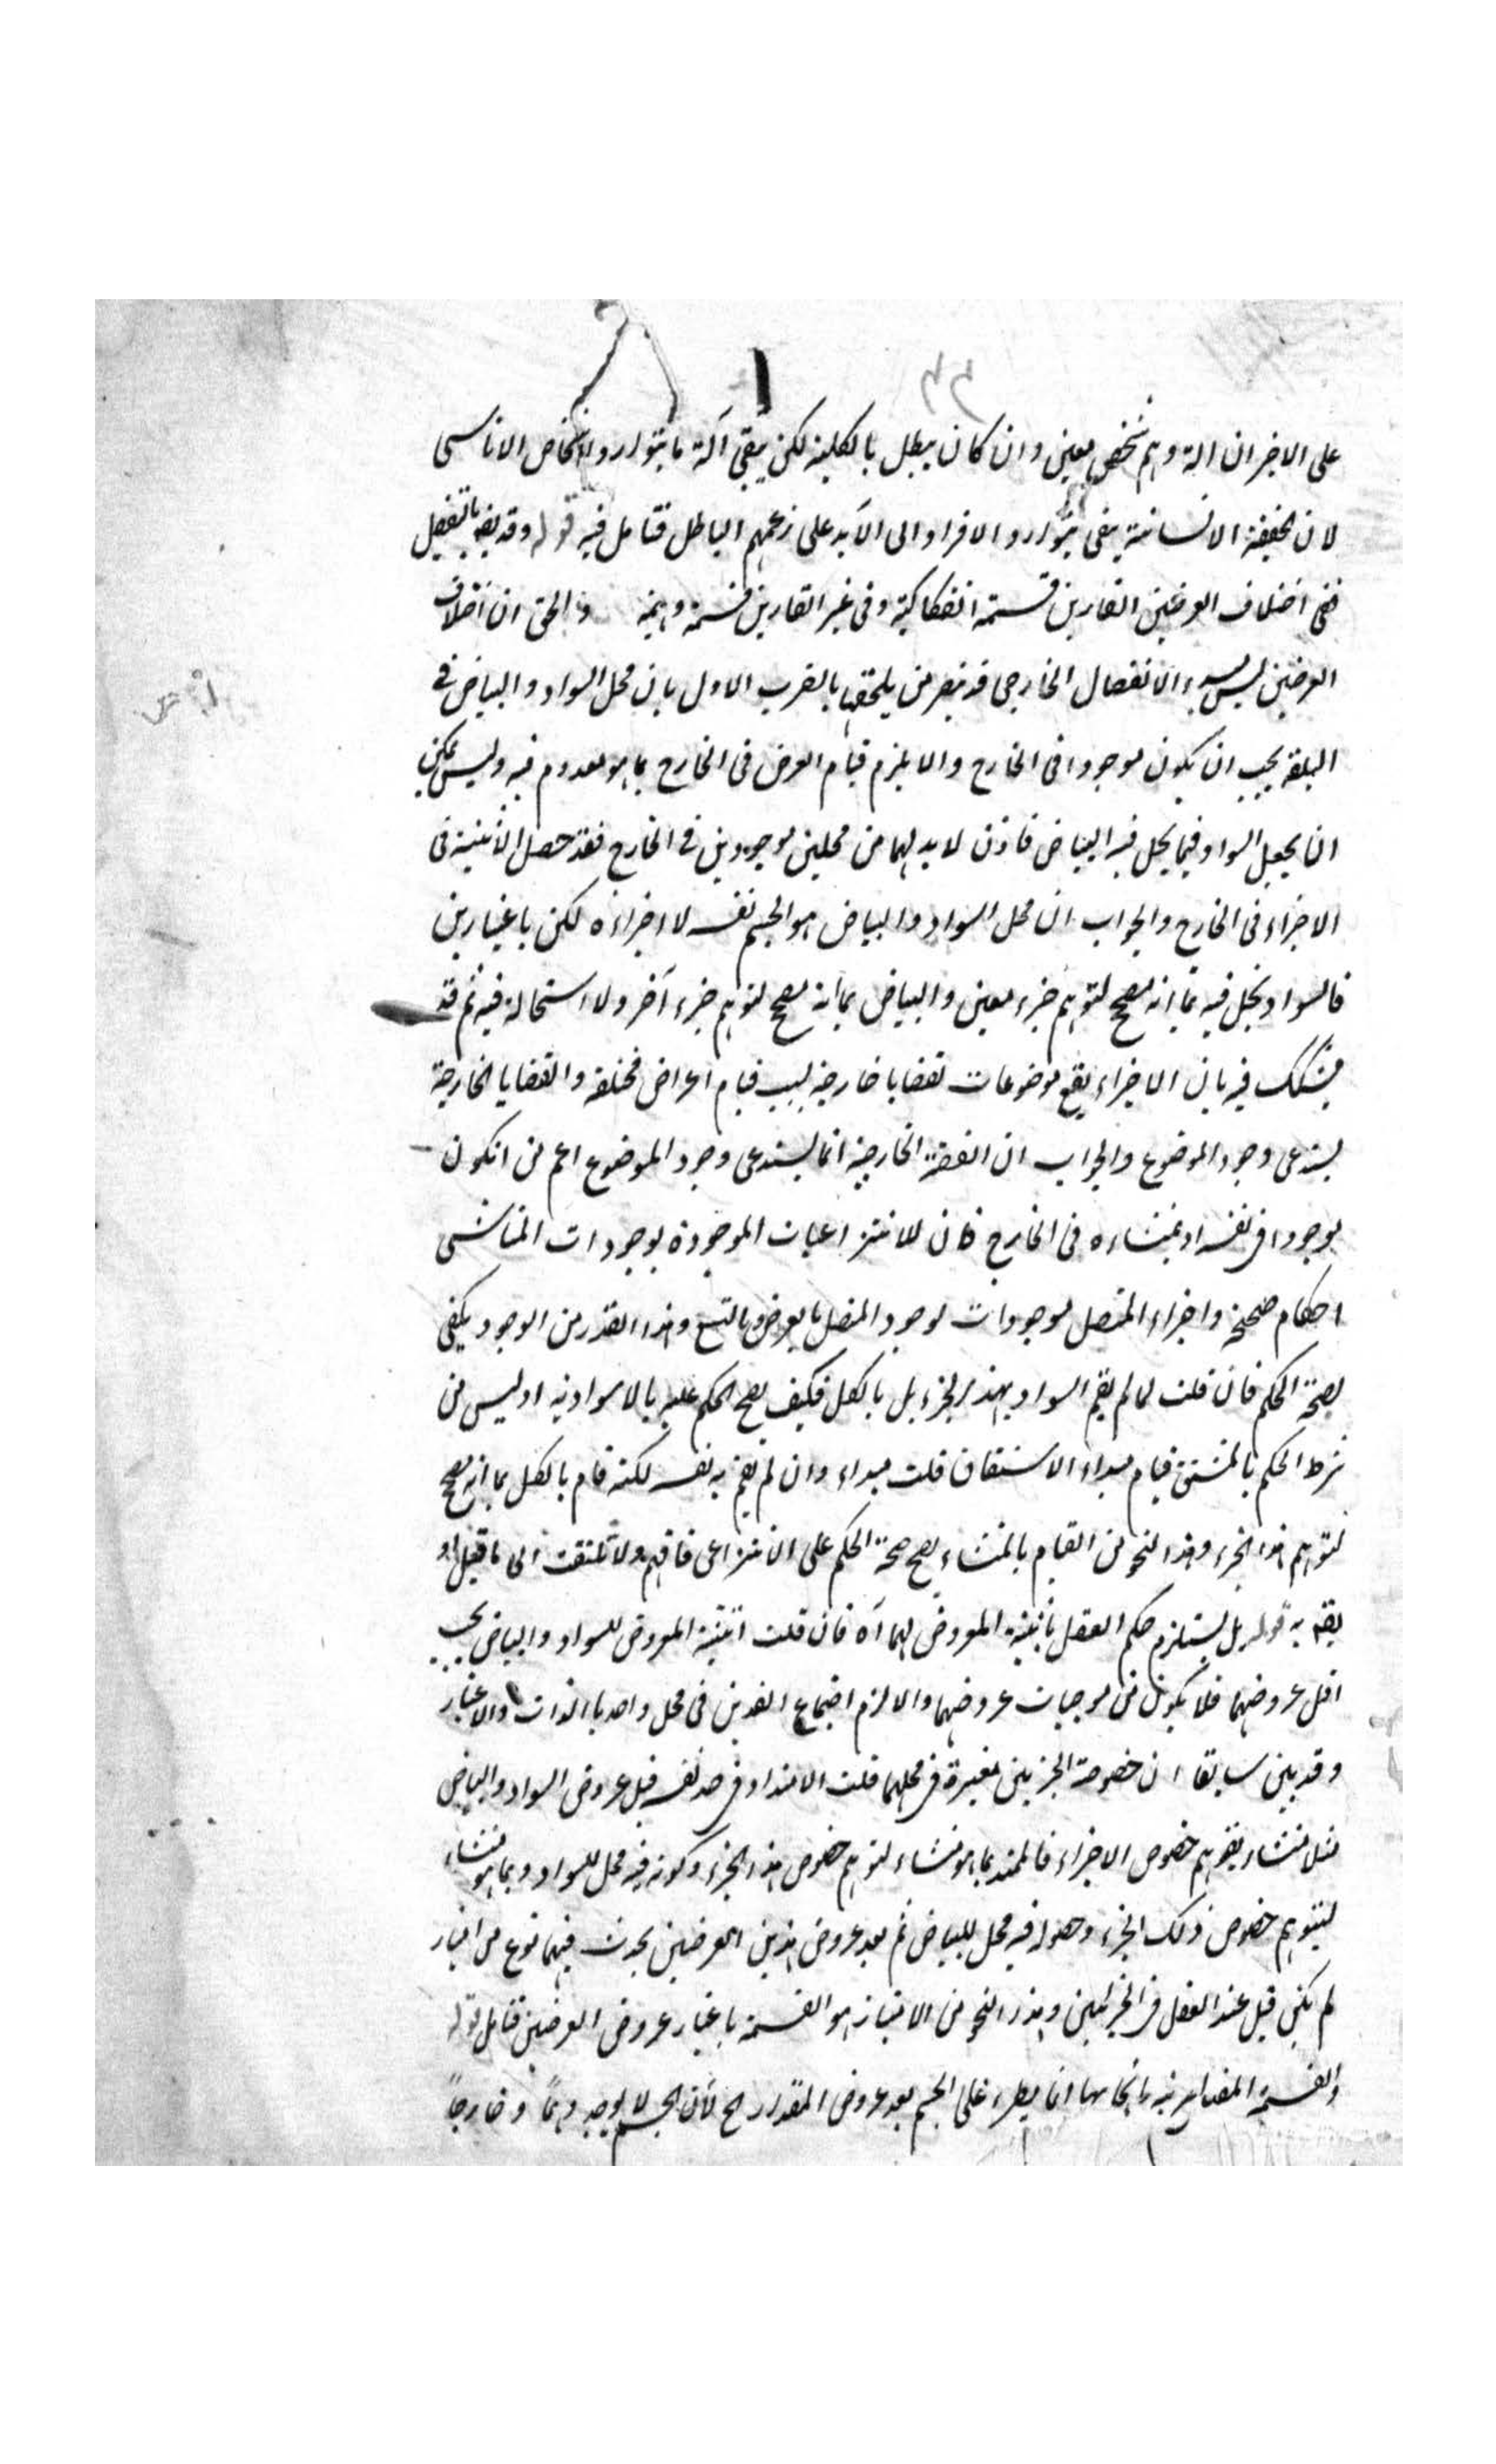 ٣٣
على الاخير ان الة وهم شخص معين وان كان يبطل بالكلية لكن يبقى آلة ما بتوارد الاشخاص الاناسى
لان الحقيقة الانسانية يبقى بتوارد الافراد الى الابد على زعمهم الباطل فتامل فيه قوله وقد يقع بالتفصيل
ففى اختلاف العرضين القارين قسمة انفكاكية وفى غير القارين قسمة وهمية والحق ان اختلاف
العرضين ليس الانفصال الخارجى فد يلحقها بالضرب الاول بان محل السواد والبياض فى
البلقة يجب ان يكون موجودا فى الخارج والا يلزم قيام العرض فى الخارج بما هو معدوم فيه وليس يمكن
ان يحل السواد فيما يحل فيه البياض فاذن لا بد لهما من محلين موجودين فى الخارج فقد حصل الاثنينية فى
الاجزاء فى الخارج والجواب ان محل السواد والبياض هو الجسم نفسه لا اجزاءه لكن باعتبارين
فالسواد يحل فيه بما انه مصحح لتوهم جزء معين والبياض بما انه مصحح لتوهم جزء آخر ولا استحالة فيه ثم قد
يشكك فيه بان الاجزاء يقع موضوعات لقضايا خارجية بسبب قيام اعراض مختلفة والقضايا الخارجية
يستدعى وجود الموضوع والجواب ان القضية الخارجية انما يستدعى وجود الموضوع اعم من ان يكون
موجودا فى نفسه او بمنشاءه فى الخارج فان للانتزاعيات الموجودة بوجودات المناشى
احكام صحيحة واجزاء المتصل موجودات لوجود المتصل بالعرض وبالتبع وهذا القدر من الوجود يكفى
لصحة الحكم فان قلت لما لم يقم السواد بهذا الجزء بل بالكل فكيف يصح الحكم عليه بالاسوادية اوليس من
شرط الحكم بالمشتق قيام مبداء الاشتقاق قلت مبداء وان لم يقم به نفسه لكنه قام بالكل بما انه مصحح
لتوهم هذا الجزء وهذا النحو من القيام بالمنشاء يصح صحة الحكم على الانتزاعى فافهم ولا تلتفت الى ما قيل او
يقم به قوله بل يستلزم حكم العقل باثنينية المعروض لهما آه فان قلت اثنينية المعروض للسواد والبياض يجب
قبل عروضهما فلا يكون من موجبات عروضهما والا لزم اجتماع الضدين فى محل واحد بالذات والاعتبار
وقد بين سابقا ان خصوصة الجزئين معتبرة فى محلهما قلت الامتداد فى حد نفسه قبل عروض السواد والبياض
مثلا منشاء بتوهم خصوص الاجزاء فالممتد بما هو منشاء لتوهم خصوص هذا الجزء وكونه فيه محل للسواد وبما هو منشاء
لتوهم خصوص ذلك الجزء وحصوله فيه محل للبياض ثم بعد عروض هذين العرضين يحدث فيهما نوع من امتياز
لم يكن قبل عند العقل فى الجزئين وهذا النحو من الامتياز هو القسمة باعتبار عروض العرضين فتامل قوله
والقسمة المقدارية بانحائها انما يطرء على الجسم بعد عروض المقدار الخ لان الجسم لا يوجد وهماً وخارجاً